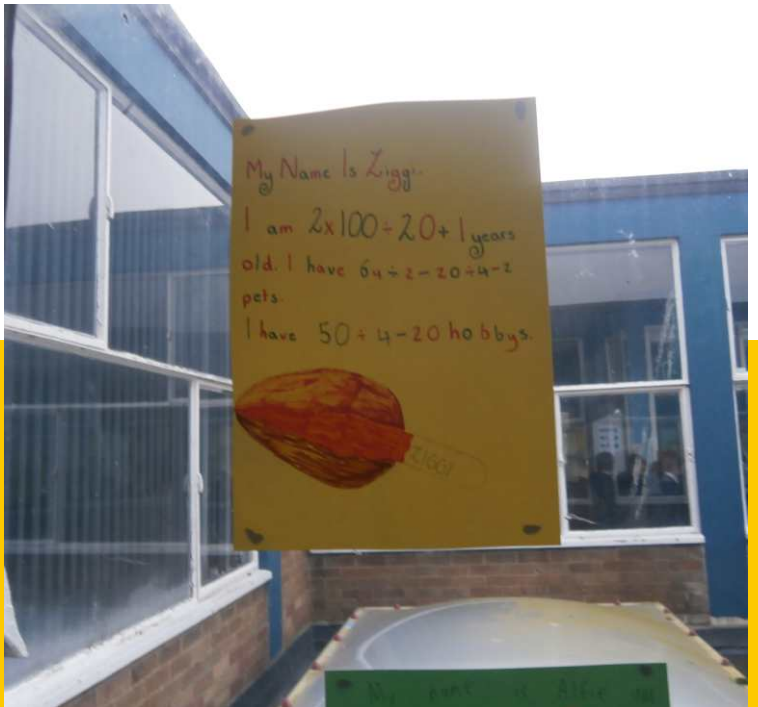 My Name Is Ziggi.
I am 2x100÷20+1 years
old. I have 64÷2-20÷4-2
pets.
I have 50÷4-20 hobbys.
ZIGGI
My name is Alfie